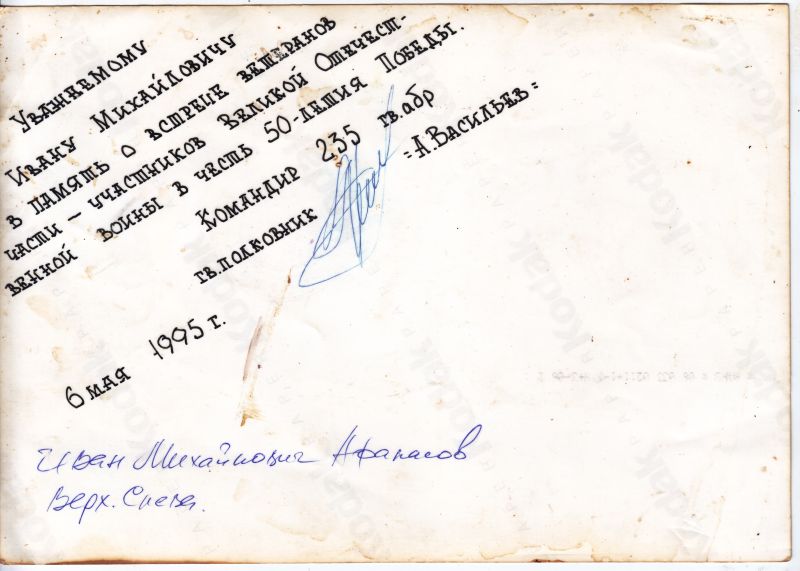 Уважаемому
Ивану Михайловичу
в память о встрече ветеранов
части – участников Великой Отечест-
венной войны в честь 50-летия Победы.
Командир 235 гв.абр
гв.полковник =А.Васильев=
6 мая 1995 г.
Иван Михайлович Афанасов
Верх.
Kodak
PAPER